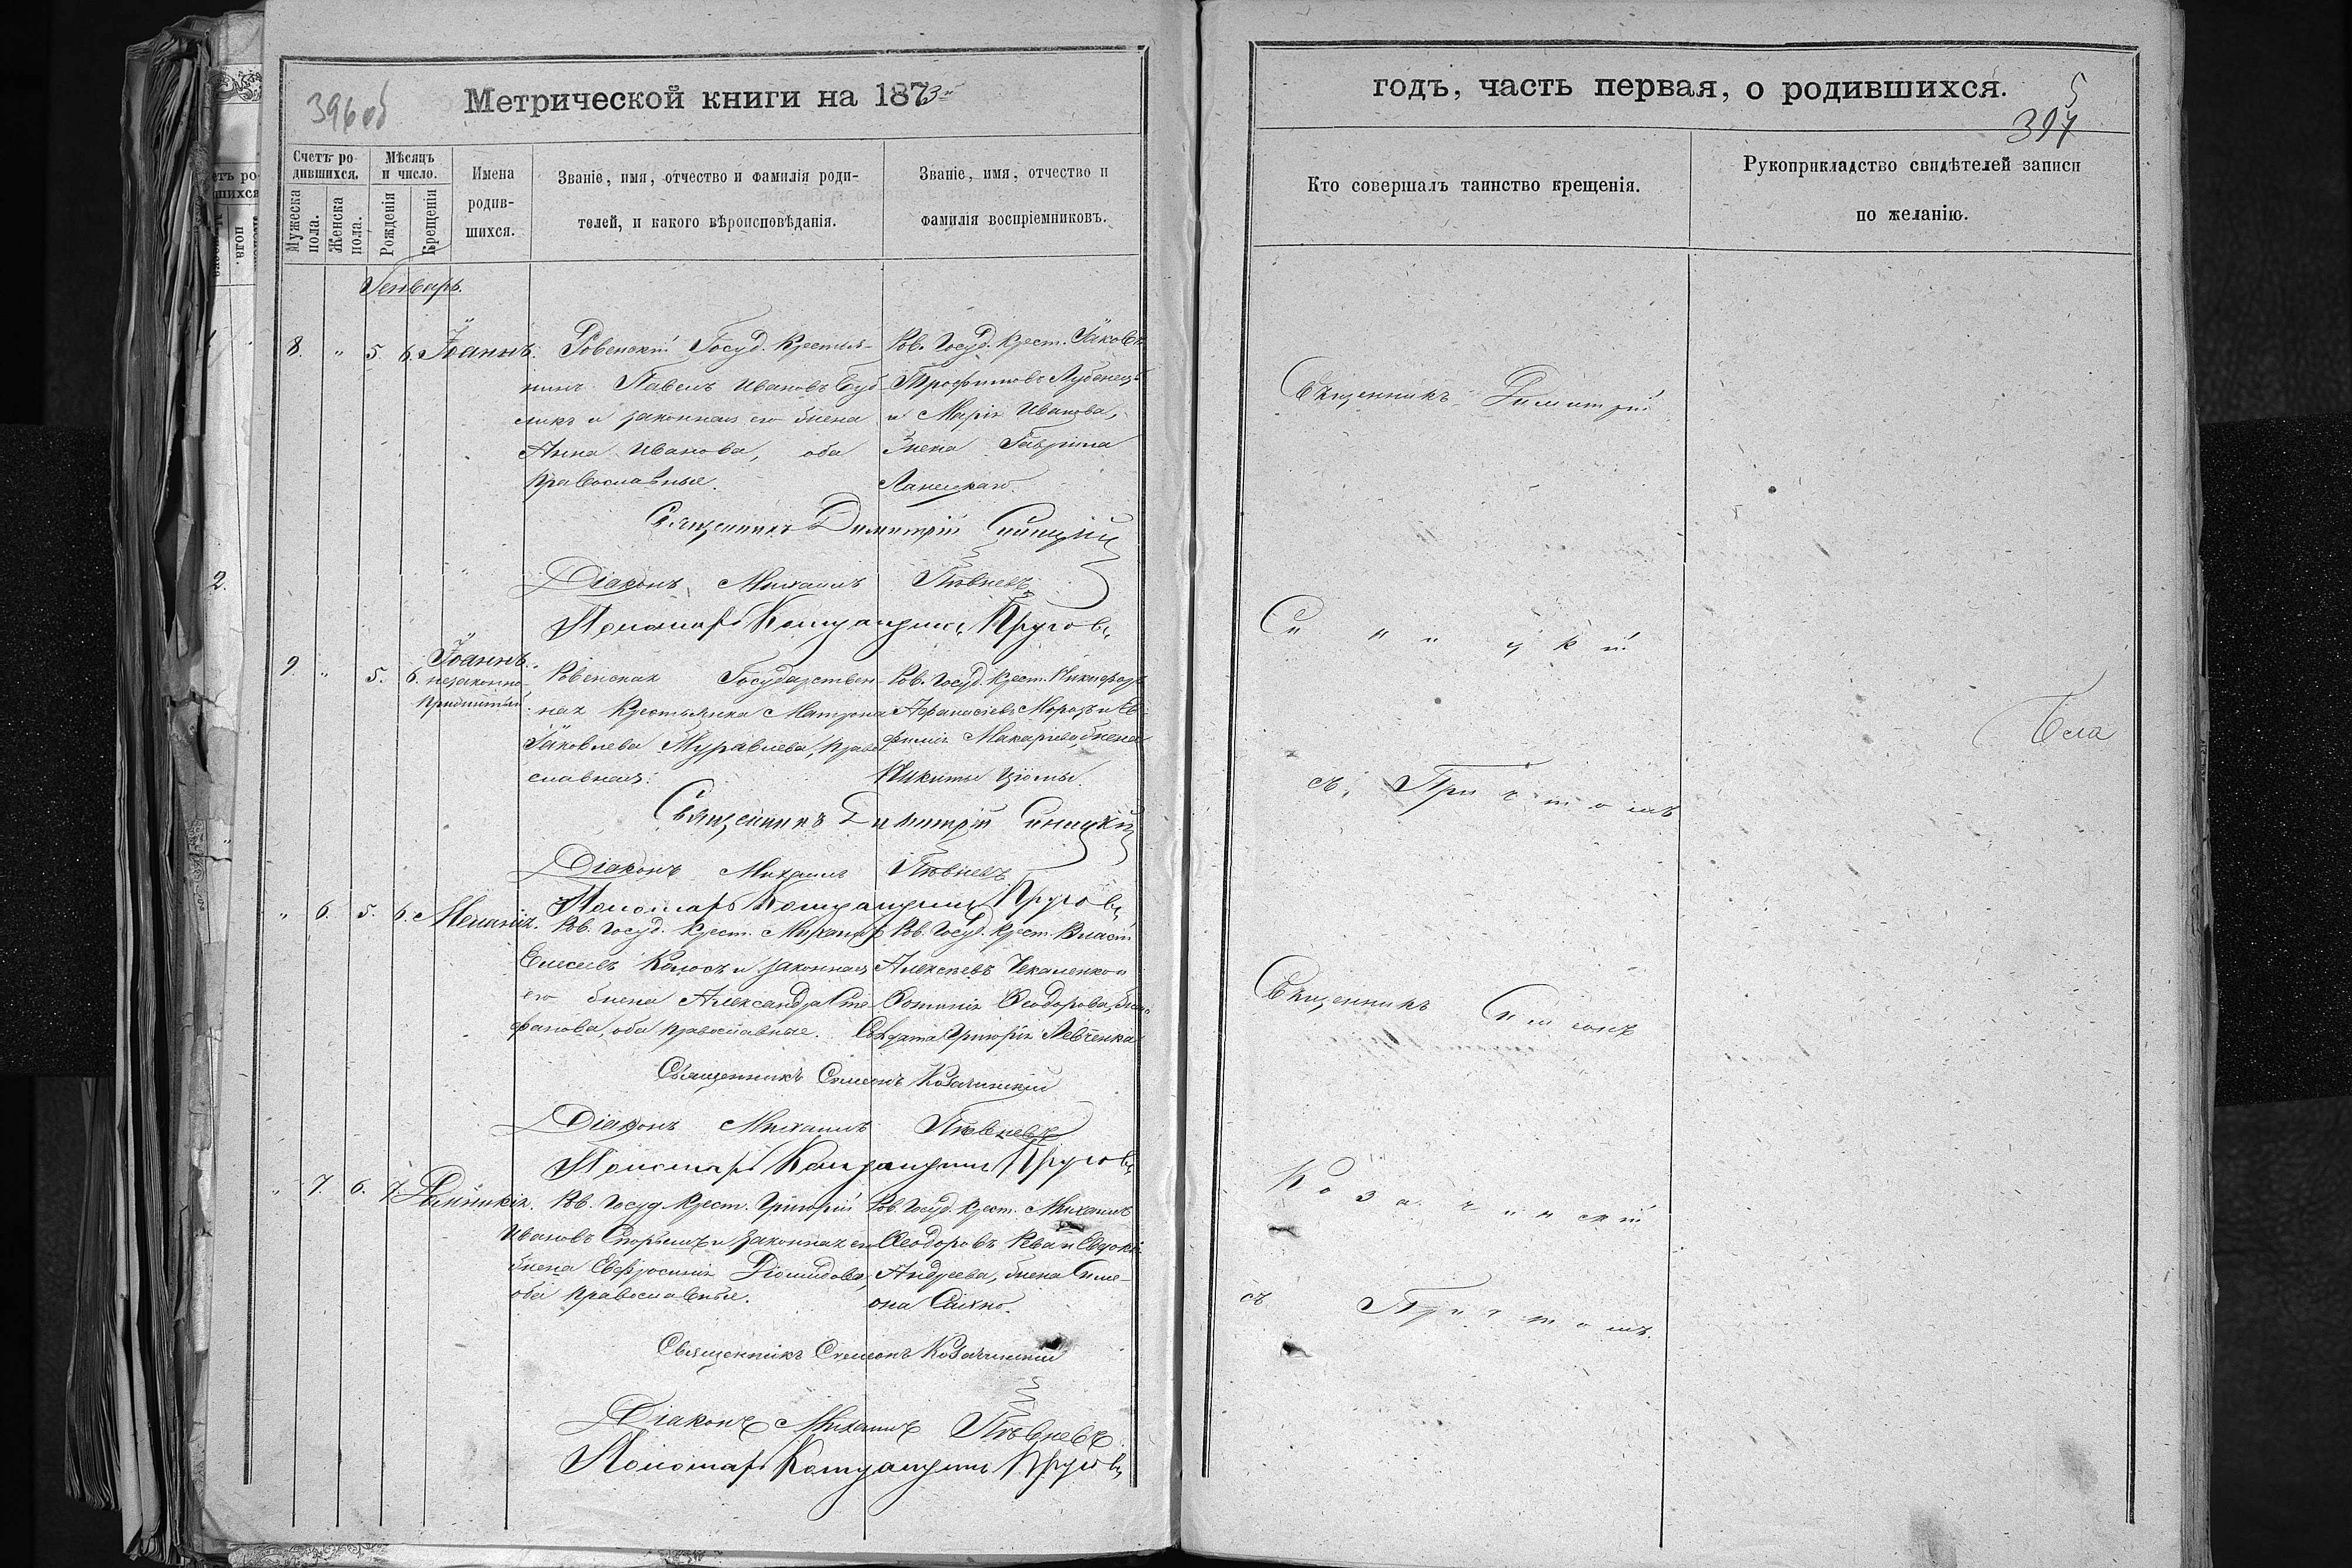 396 об
Метрической книги на 1873й
Счетъ ро-
дившихся.
Мужеска
пола.
Женска
пола.
Мѣсяцъ
и число.
Рожденія
Крещенія
Имена
родив-
шихся.
Званіе, имя, отчество и фамилія роди-
телей, и какого вѣроисповѣданія.
Званіе, имя, отчество и
фамилія воспріемниковъ.
Генварь.
8. " 5. 6. Іоаннъ. Ровенскій Госуд. Крестья-
нинъ Павелъ Ивановъ
и законная его жена
Анна Иванова, оба
православные.
Ров. Госуд. Крест. Іаковъ
Трофимовъ Лубенецъ
и Марія Иванова,
жена Гавріила
Священникъ Димитрій Синицкій
Діаконъ Михаилъ Пѣвневъ
Пономарь
9. " 5. 6. Іоаннъ.
незаконно-
прижитый.
Ровенская Государствен-
ная Крестьянка Матрона
Іаковлева Журавлева, право
славная.
Ров. Госуд. Крест. Никифоръ
Афанасіевъ Морозъ и Ев-
фимія Макаріева, жена
Никиты
Священникъ Димитрій Синицкій
Діаконъ Михаилъ Пѣвневъ
Пономарь
" 6. 5. 6. Меланія. Ров. Госуд. Крест. Михаилъ
Елисеевъ Колосъ и законная
его жена Александра Сте-
фанова, оба православные.
Ров. Госуд. Крест. Власій
Алексѣевъ Чекаленко и
Ѳеодорова, жена
Солдата Григорія Левченка
Священникъ Симеонъ Козачинскій
Діаконъ Михаилъ Пѣвневъ
Пономарь
" 7. 6. 7. Ров. Госуд. Крест. Григорій
Ивановъ и законная его
жена Евфросинія Діомидова,
оба православные.
Ров. Госуд. Крест. Михаилъ
Ѳеодоровъ Рева и Евдокія
Андреева, жена Симе-
она Сахно.
Священникъ Симеонъ Козачинскій
Діаконъ Михаилъ Пѣвневъ
Пономарь
годъ, часть первая, о родившихся.
5
397
Кто совершалъ таинство крещенія.
Рукоприкладство свидѣтелей записи
по желанію.
Священникъ Димитрій
Синицкій
съ Причтомъ
Священникъ Симеонъ
Козачинскій
съ Причтомъ.